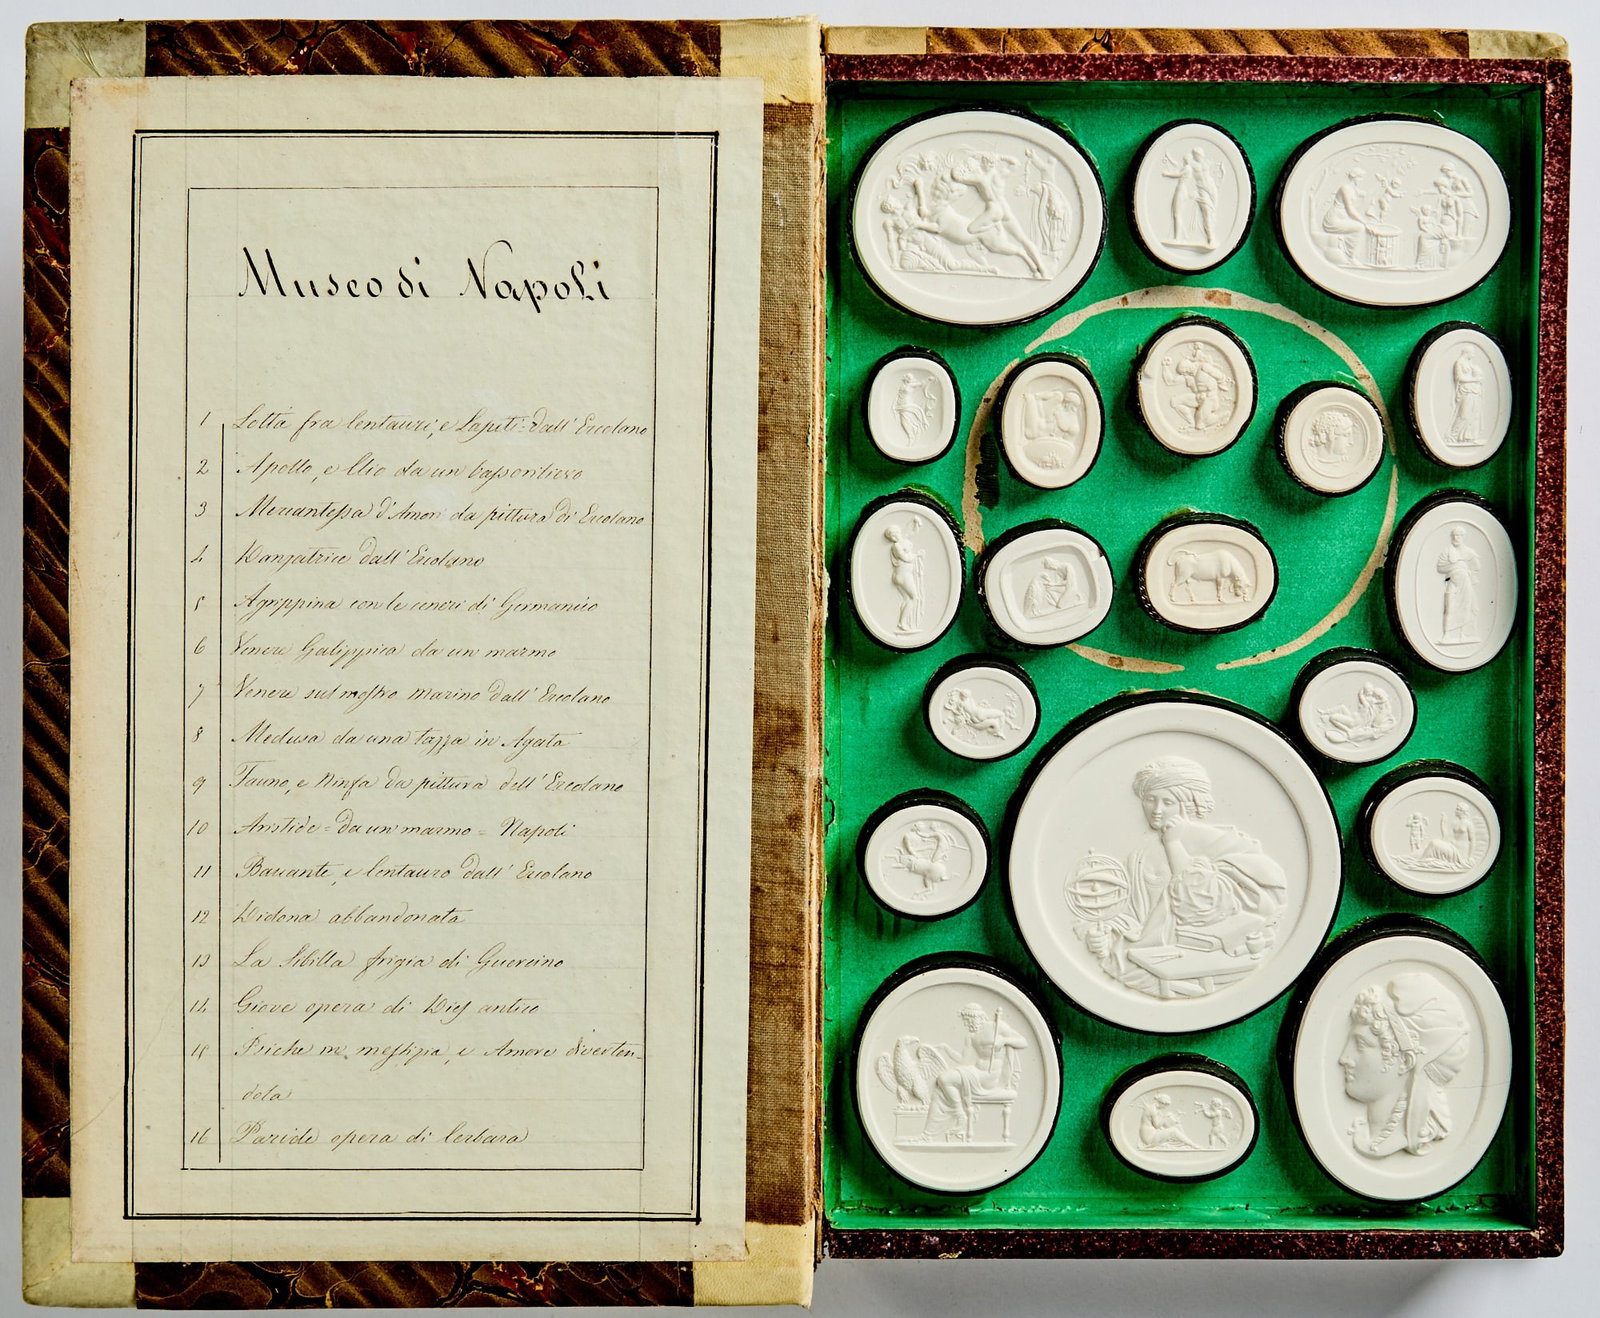 Museo di Napoli
1 Lotta fra Centauri, e Lapiti = dall' Ercolano
2 Apollo, e Clio da un bassorilievo
3 Mercantessa d'Amori da pittura di Ercolano
4 Danzatrice dall' Ercolano
5 Agrippina con le ceneri di Germanico
6 Venere Galippica da un marmo
7 Venere sul mostro marino dall' Ercolano
8 Medusa da una tazza in Agata
9 Fauno, e Ninfa da pittura dell' Ercolano
10 Aristide = da un marmo = Napoli
11 Baccante, e Centauro dall' Ercolano
12 Didona abbandonata
13 La Sibilla frigia di Guercino
14 Giove opera di antico
15 Psiche mesta, e Amore diverten-
dola
16 Paride opera di Cerbara